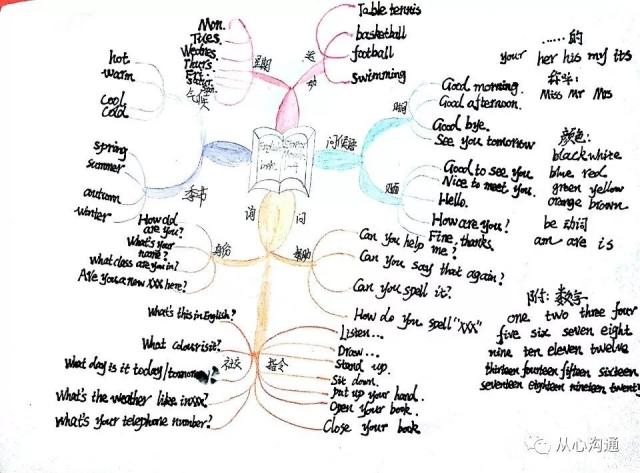 Mon.
Tues.
Wednes.
Thurs.
Fri.
星期
运
动
Table tennis
basketball
football
swimming
hot
warm
cool
cold
气候
spring
summer
autumn
winter
季节
问候语
时间
Good morning.
Good afternoon.
Good bye.
See you tomorrow
见面
Good to see you
Nice to meet you.
Hello.
How are you?
Fine, thanks.
询
问
身份
How old
are you?
What's your
name?
What class are you in?
Are you a new XXX here?
帮助
Can you help
me?
Can you say that again?
Can you spell it?
How do you spell "XXX"
社交
What's this in English?
What colour is it?
What day is it today/tomorrow
What's the weather like in XX?
What's your telephone number?
指令
Listen...
Draw...
Stand up.
Sit down.
Put up your hand.
Open your book.
Close your book
......的
your her his my its
Miss Mr Mrs
颜色:
black white
blue red
green yellow
orange brown
be 动词
am are is
附: 数字
one two three four
five six seven eight
nine ten eleven twelve
thirteen fourteen fifteen sixteen
seventeen eighteen nineteen twenty
从心沟通